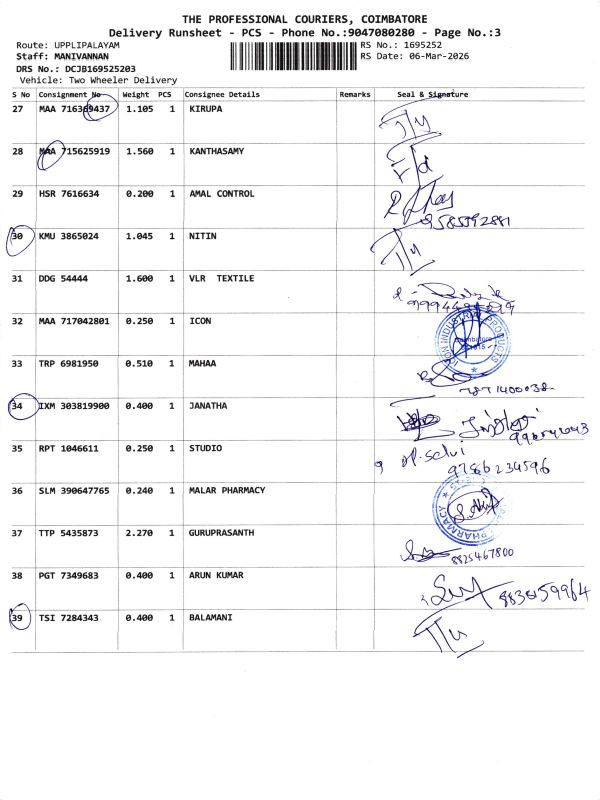 THE PROFESSIONAL COURIERS, COIMBATORE
Delivery Runsheet - PCS - Phone No.:9047080280 - Page No.:3
Route: UPPLIPALAYAM RS No.: 1695252
Staff: MANIVANNAN RS Date: 06-Mar-2026
DRS No.: DCJB169525203
Vehicle: Two Wheeler Delivery
S No Consignment No Weight PCS Consignee Details Remarks Seal & Signature
27 MAA 716369437 1.105 1 KIRUPA
28 MAA 715625919 1.560 1 KANTHASAMY
29 HSR 7616634 0.200 1 AMAL CONTROL
9585592881
30 KMU 3865024 1.045 1 NITIN
31 DDG 54444 1.600 1 VLR TEXTILE
32 MAA 717042801 0.250 1 ICON
ICON INDUSTRIAL PRODUCTS
33 TRP 6981950 0.510 1 MAHAA
7871400038
34 IXM 303819900 0.400 1 JANATHA
35 RPT 1046611 0.250 1 STUDIO
9786234596
36 SLM 390647765 0.240 1 MALAR PHARMACY
PHARMACY
37 TTP 5435873 2.270 1 GURUPRASANTH
8825467800
38 PGT 7349683 0.400 1 ARUN KUMAR
8838159964
39 TSI 7284343 0.400 1 BALAMANI